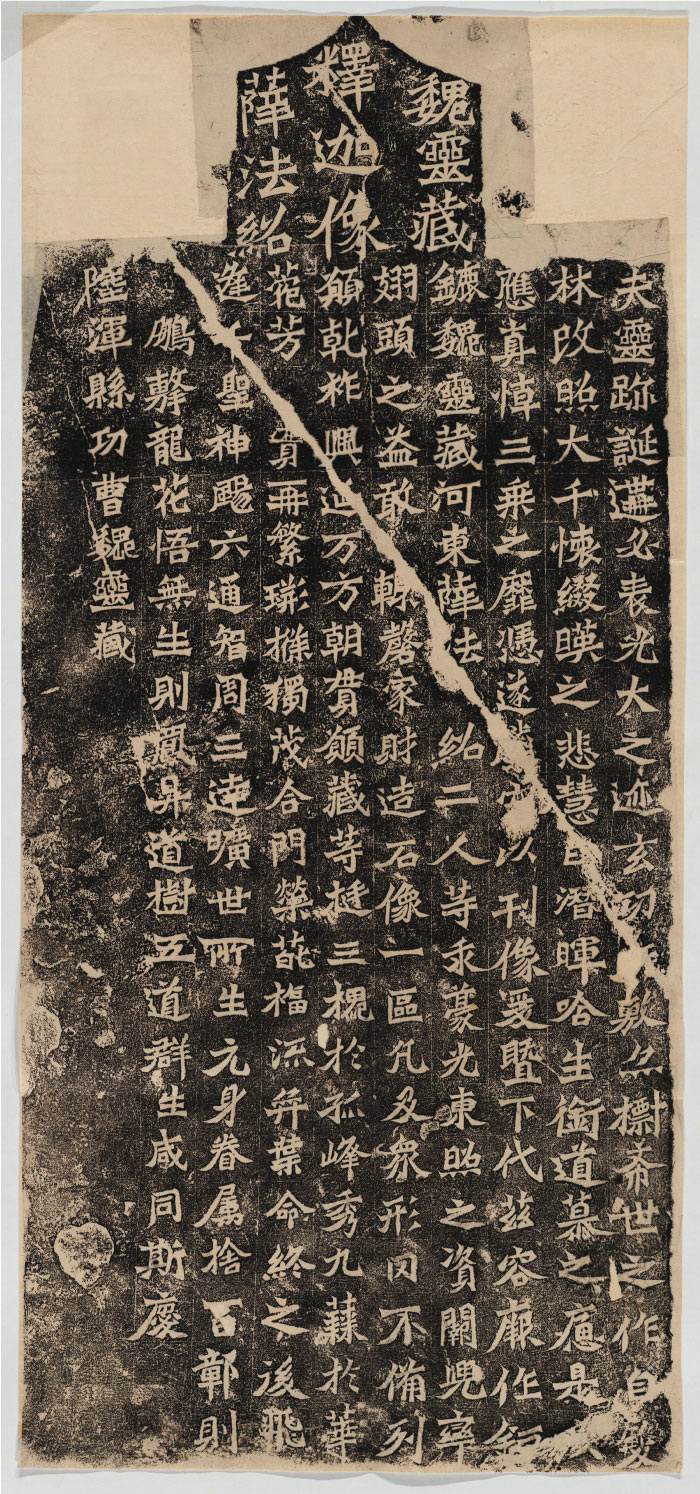 魏靈藏
釋迦像
薛法紹
夫靈跡誕遘必表光大之迹玄功敷亦標希世之作自雙
林改照大千懷綴暎之悲慧日潛暉唅生銜道慕之痛是
應真悼三乘之靡憑遂空以刊像爰暨下代茲容厥作鉅
鏕魏靈藏河東薛法紹二人等求豪光東照之資闕兜率
翅頭之益敢輒磬家財造石像一區凡及眾形罔不備列
願乾祚興延万方朝貫願藏等挺三槐於孤峰秀九蕀於華
菀芳實再繁荊條獨茂合門榮葩福流奕葉命終之後飛
逢千聖神颺六通智周三達曠世所生元身眷屬捨百鄣則
鵬擊龍花悟無生則鳳昇道樹五道群生咸同斯慶
陸渾縣功曹魏靈藏